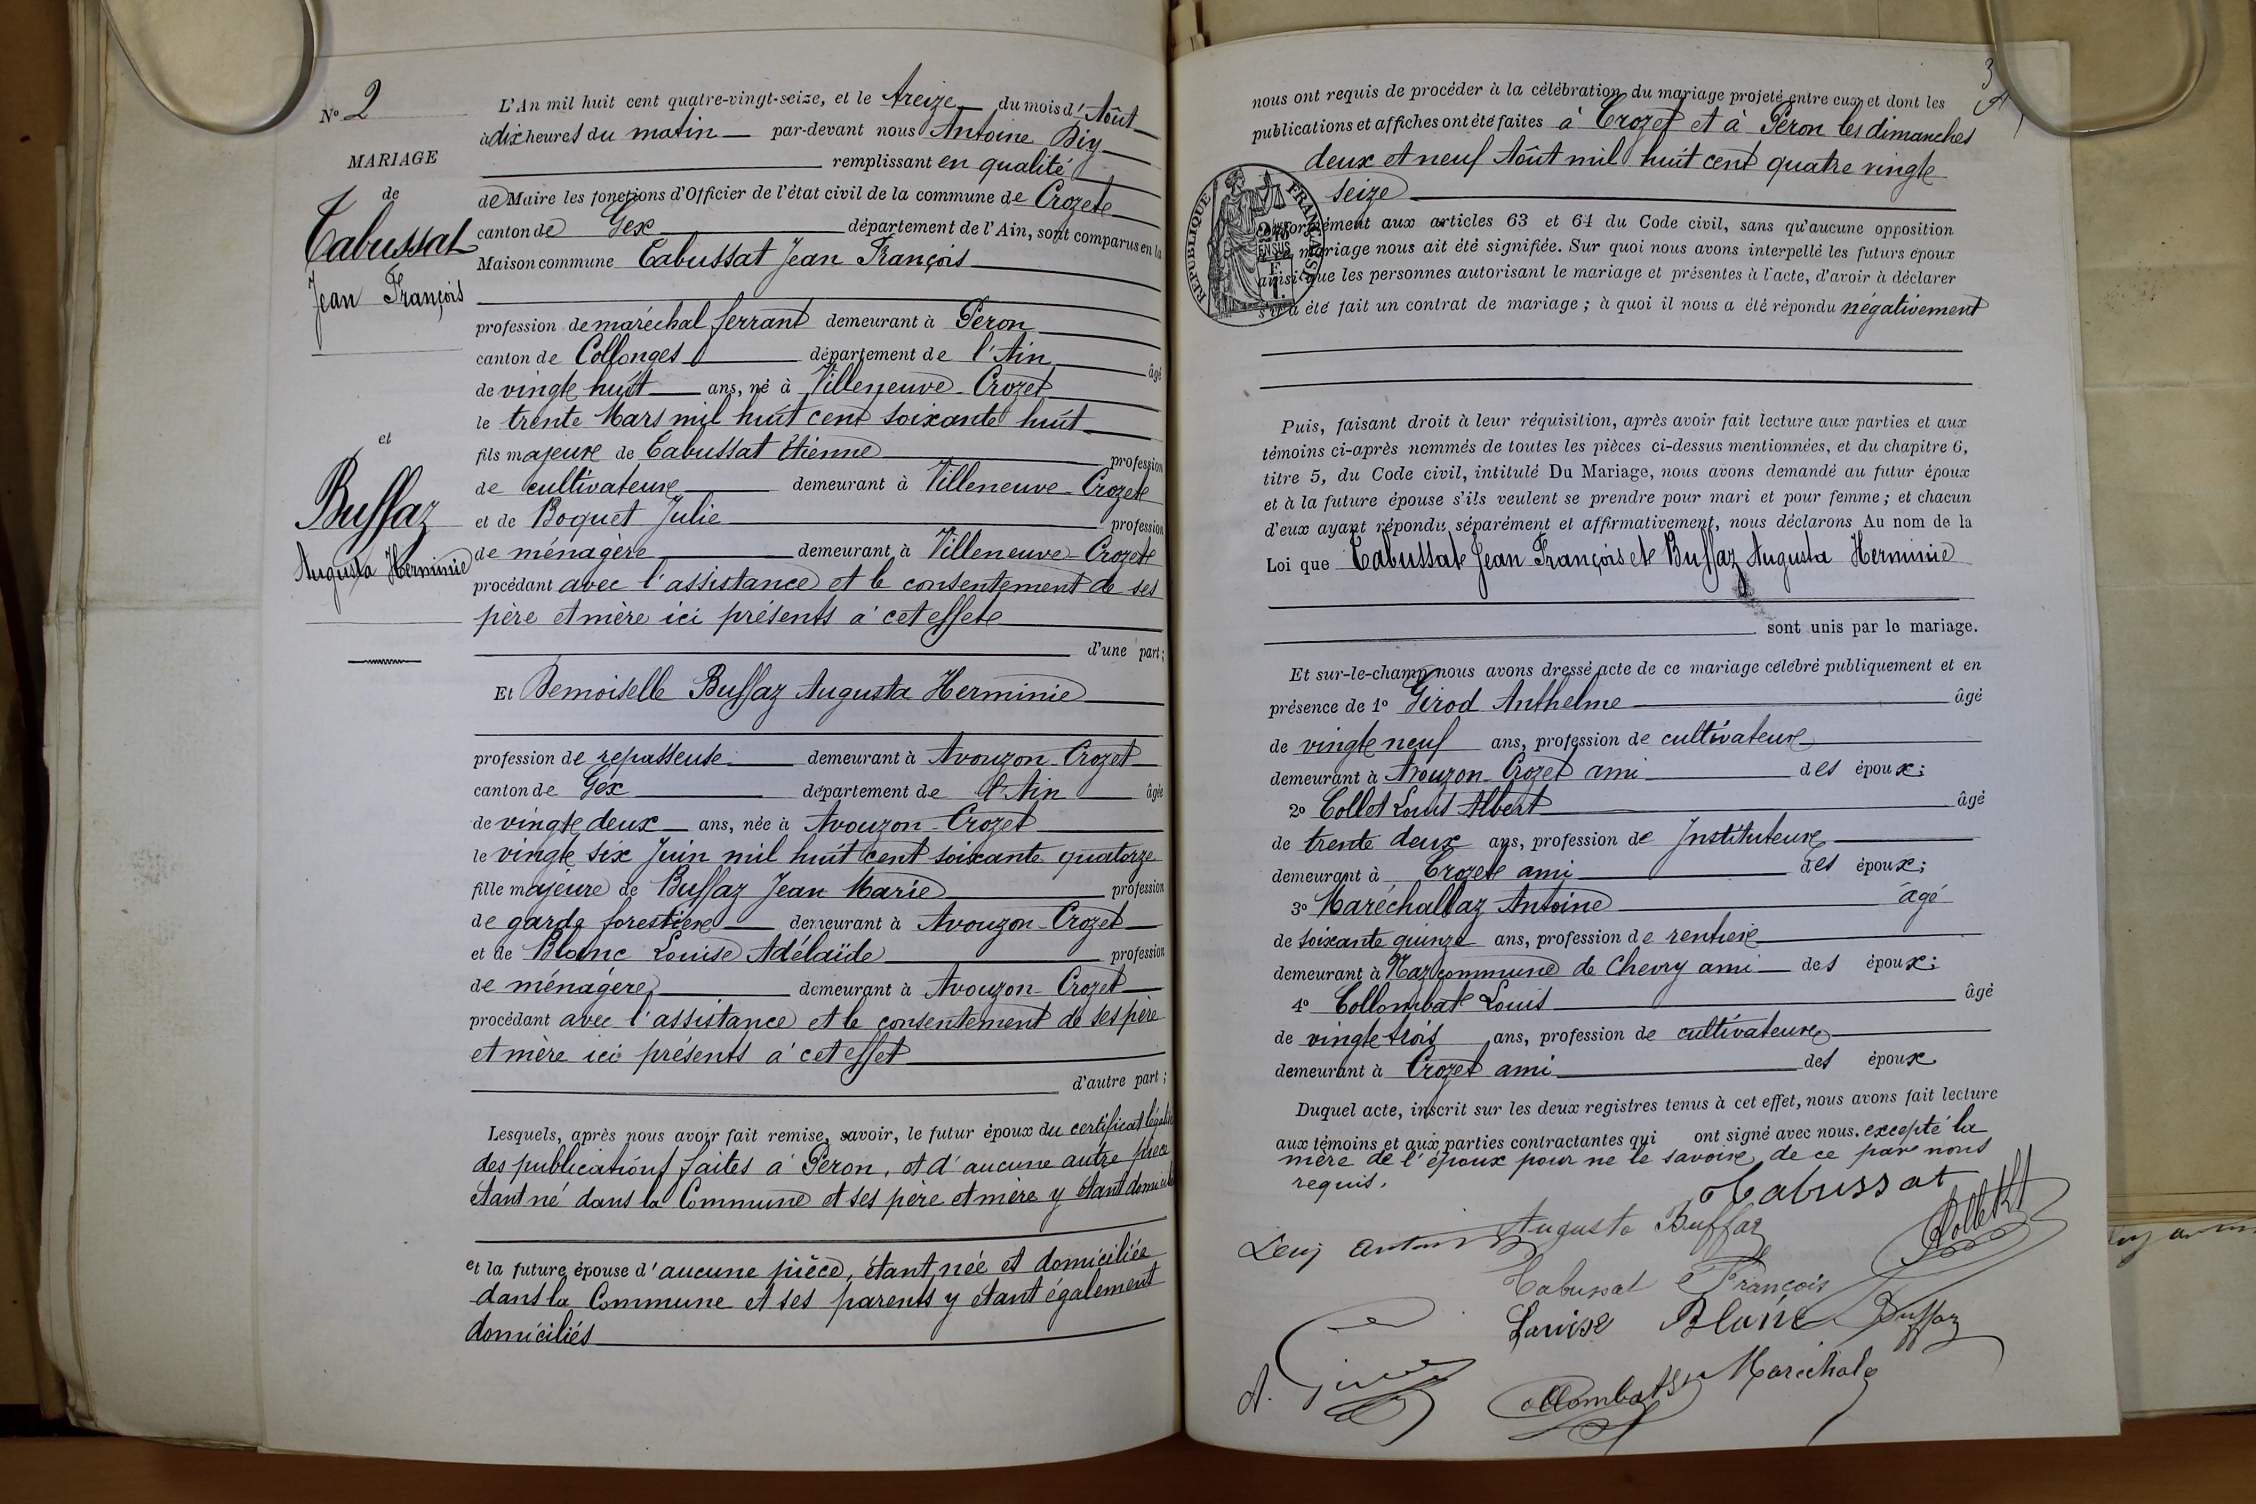 N° 2
MARIAGE
de
Tabussat
Jean François
et
Buffaz
Augusta Herminie
L'An mil huit cent quatre-vingt-seize, et le treize du mois d'Aôut
à dix heures du matin par-devant nous Antoine
remplissant en qualité
de Maire les fonctions d'Officier de l'état civil de la commune de Crozet
canton de Gex département de l'Ain, sont comparus en la
Maison commune Tabussat Jean François
profession de maréchal ferrant demeurant à Péron
canton de Collonges département de l'Ain âgé
de vingt huit ans, né à Villeneuve-Crozet
le trente Mars mil huit cent soixante huit
fils majeur de Tabussat Etienne profession
de cultivateur demeurant à Villeneuve-Crozet
et de Boquet Julie profession
de ménagère demeurant à Villeneuve-Crozet
procédant avec l'assistance et le consentement de ses
père et mère ici présents à cet effet
d'une part;
Et Demoiselle Buffaz Augusta Herminie
profession de repasseuse demeurant à Avouzon-Crozet
canton de Gex département de l'Ain âgée
de vingt deux ans, née à Avouzon-Crozet
le vingt six Juin mil huit cent soixante quatorze
fille majeure de Buffaz Jean Marie profession
de garde forestier demeurant à Avouzon-Crozet
et de Blanc Louise Adélaïde profession
de ménagère demeurant à Avouzon-Crozet
procédant avec l'assistance et le consentement de ses père
et mère ici présents à cet effet
d'autre part;
Lesquels, après nous avoir fait remise, savoir, le futur époux du certificat
des publications faites à Péron, et d'aucune autre pièce
étant né dans la Commune et ses père et mère y étant
et la future épouse d'aucune pièce, étant née et domiciliée
dans la Commune et ses parents y étant également
domiciliés
3
nous ont requis de procéder à la célébration du mariage projeté entre eux et dont les
publications et affiches ont été faites à Crozet et à Péron les dimanches
deux et neuf Aôut mil huit cent quatre vingt
seize
RÉPUBLIQUE FRANÇAISE
conformément aux articles 63 et 64 du Code civil, sans qu'aucune opposition
au mariage nous ait été signifiée. Sur quoi nous avons interpellé les futurs époux
ainsi que les personnes autorisant le mariage et présentes à l'acte, d'avoir à déclarer
s'il a été fait un contrat de mariage; à quoi il nous a été répondu négativement
Puis, faisant droit à leur réquisition, après avoir fait lecture aux parties et aux
témoins ci-après nommés de toutes les pièces ci-dessus mentionnées, et du chapitre 6,
titre 5, du Code civil, intitulé Du Mariage, nous avons demandé au futur époux
et à la future épouse s'ils veulent se prendre pour mari et pour femme; et chacun
d'eux ayant répondu séparément et affirmativement, nous déclarons Au nom de la
Loi que Tabussat Jean François et Buffaz Augusta Herminie
sont unis par le mariage.
Et sur-le-champ nous avons dressé acte de ce mariage célébré publiquement et en
présence de 1° Girod Anthelme âgé
de vingt neuf ans, profession de cultivateur
demeurant à Avouzon-Crozet ami des époux;
2° Collet Louis Albert âgé
de trente deux ans, profession de Instituteur
demeurant à Crozet ami des époux;
3° Maréchallaz Antoine âgé
de soixante quinze ans, profession de rentier
demeurant à Naz commune de Chevry ami des époux;
4° Collombat Louis âgé
de vingt trois ans, profession de cultivateur
demeurant à Crozet ami des époux
Duquel acte, inscrit sur les deux registres tenus à cet effet, nous avons fait lecture
aux témoins et aux parties contractantes qui ont signé avec nous. excepté la
mère de l'époux pour ne le savoir, de ce par nous
requis.
Tabussat
Augusta Buffaz
Tabussat François
Louise Blanc Buffaz
A. Girod
Collombat Maréchalaz